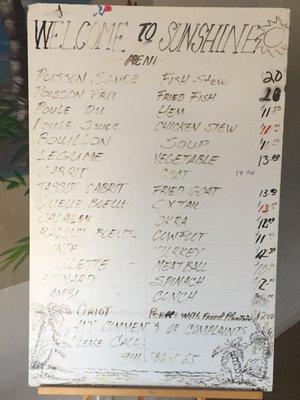 WELCOME TO SUNSHINE
MENU
POISSON SAUCE FISH-STEW $20
POISSON FRIT FRIED FISH 20
POULE DU HEN $11
POULE SAUCE CHICKEN STEW
BOUILLON SOUP
LEGUME VEGETABLE 13.00
CABRIT GOAT 14.00
TASSOT CABRIT FRIED GOAT
QUEUE BOEUF OXTAIL
CALALOU OKRA
RAGOUT BOEUF COWFOOT
DINDE TURKEY
BOULETTE MEATBALL
EPINARD SPINACH
LAMBI CONCH
GRIOT PORK with Fried Plantain
ANY COMMENTS OR COMPLAINTS
PLEASE CALL: